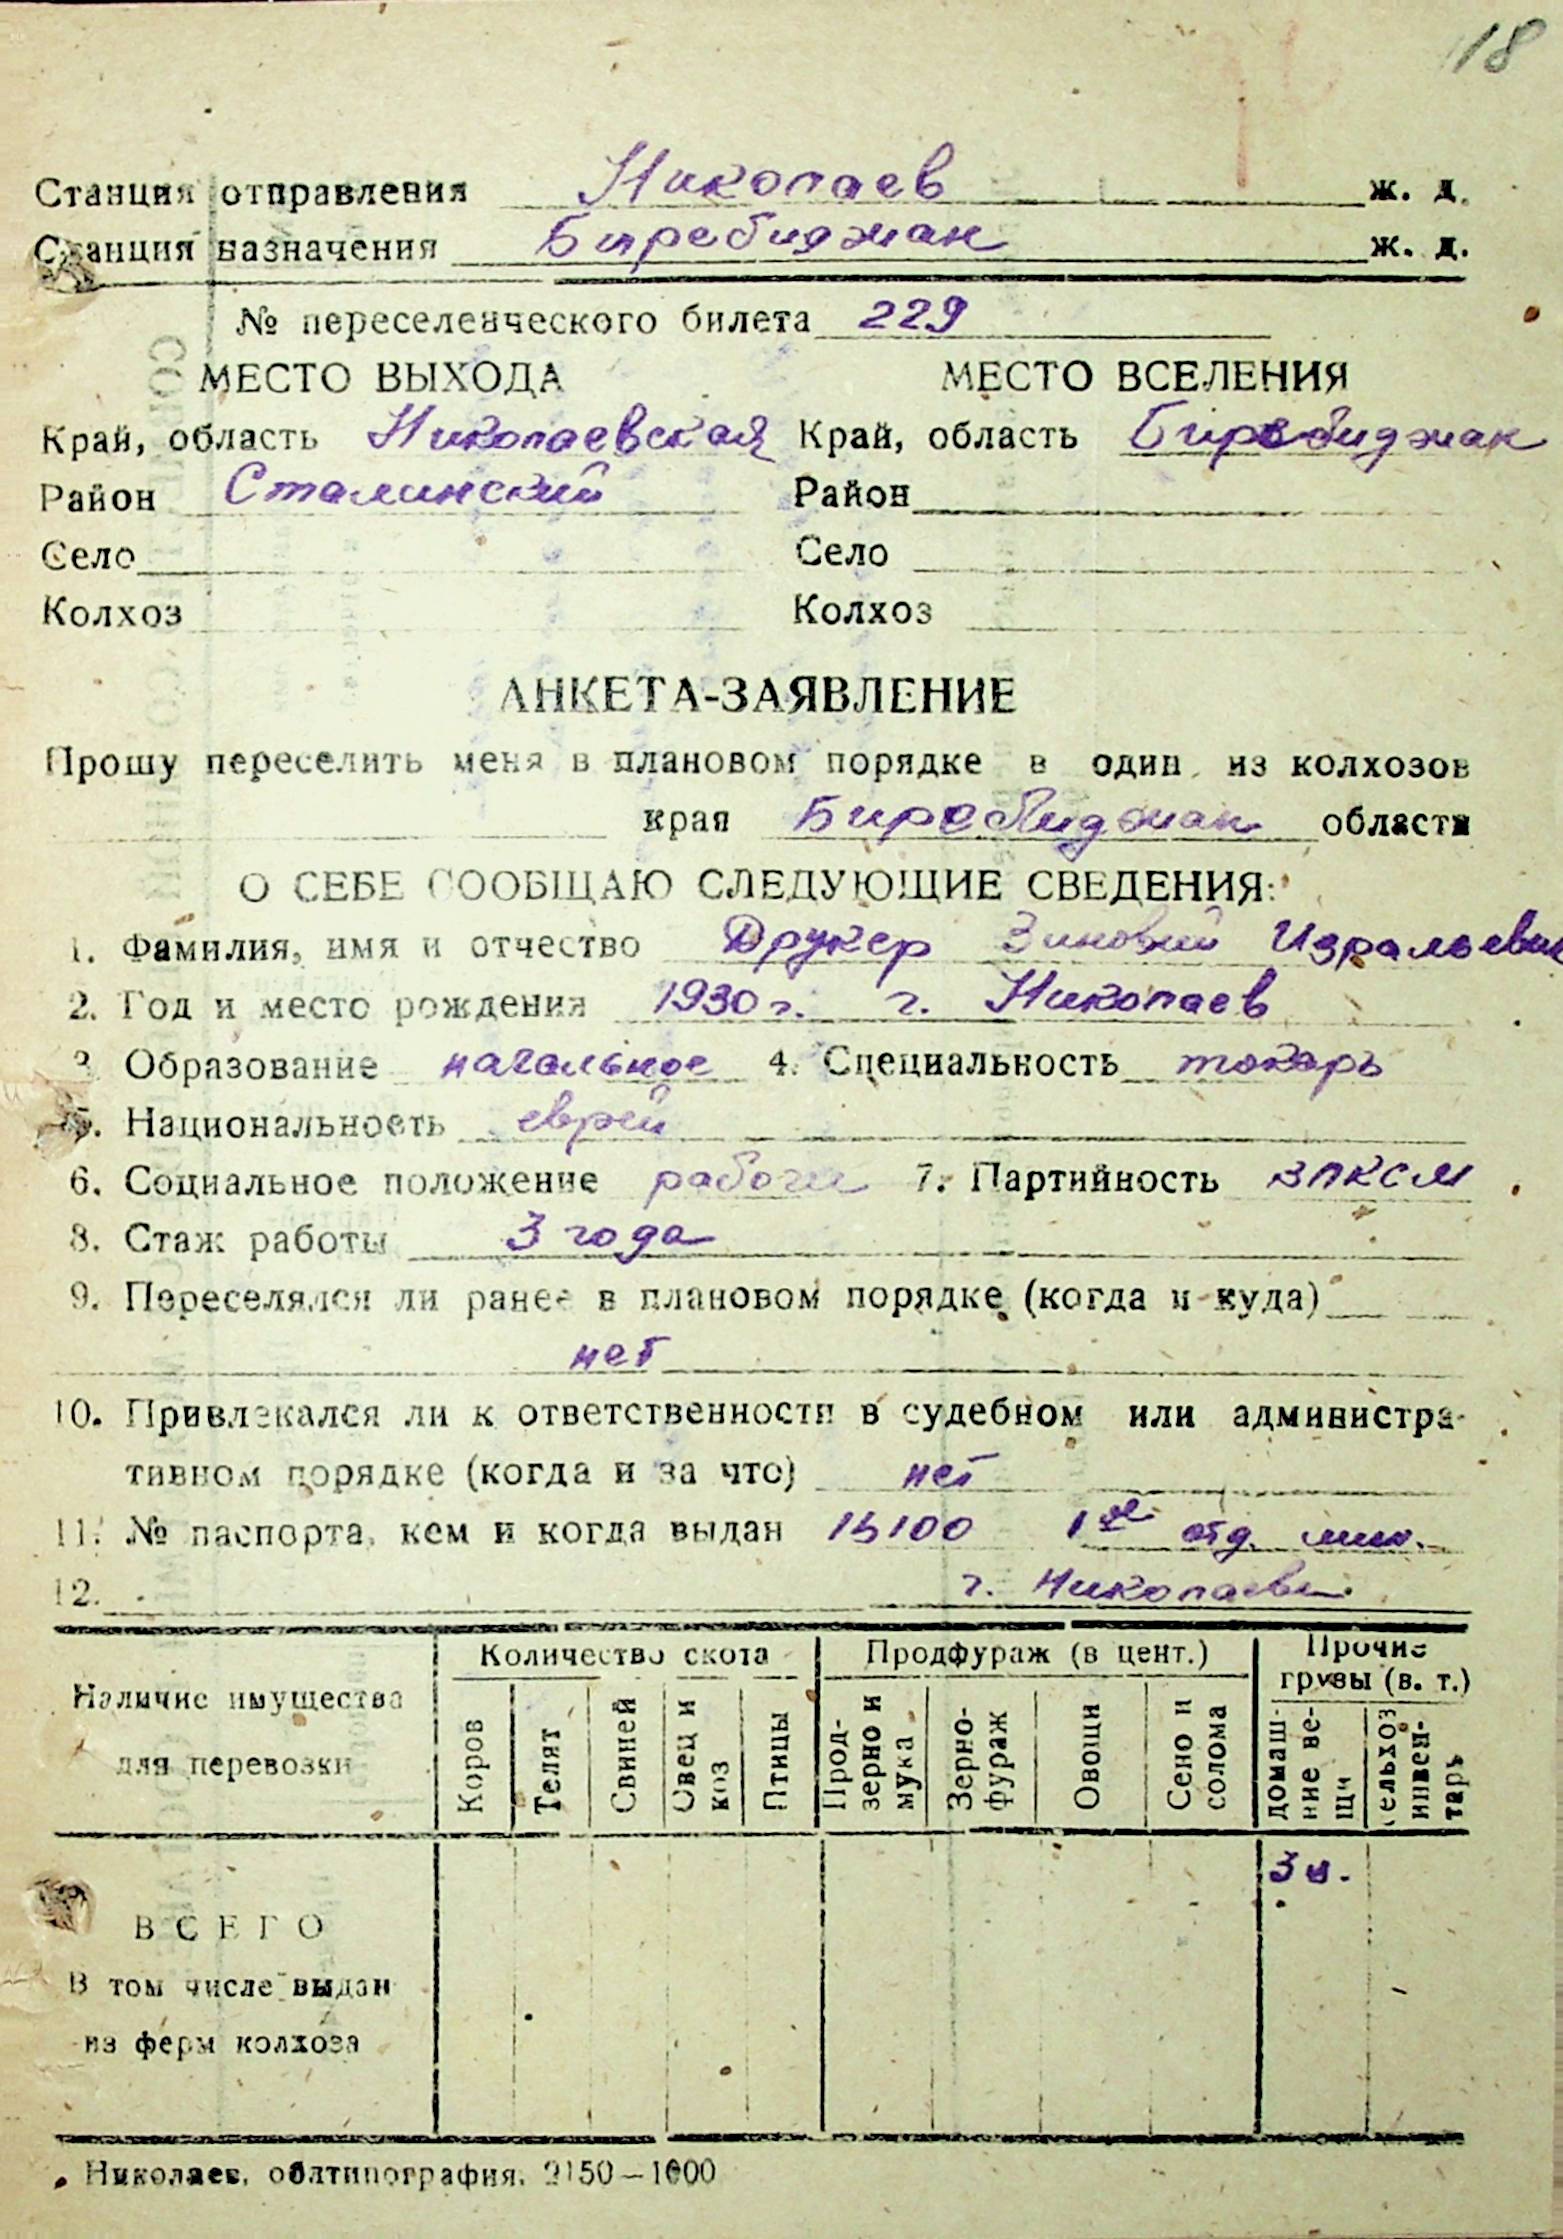 18
Станция отправления Николаев ж. д.
Станция назначения Биробиджан ж. д.
№ переселенческого билета 229
МЕСТО ВЫХОДА МЕСТО ВСЕЛЕНИЯ
Край, область Николаевская Край, область Биробиджан
Район Сталинский Район
Село Село
Колхоз Колхоз
АНКЕТА-ЗАЯВЛЕНИЕ
Прошу переселить меня в плановом порядке в один из колхозов
края Биробиджан области
О СЕБЕ СООБЩАЮ СЛЕДУЮЩИЕ СВЕДЕНИЯ:
1. Фамилия, имя и отчество Друкер Зиновий Изральевич
2. Год и место рождения 1930 г. г. Николаев
3. Образование начальное 4. Специальность токарь
5. Национальность еврей
6. Социальное положение рабочи 7. Партийность ВЛКСМ
8. Стаж работы 3 года
9. Переселялся ли ранее в плановом порядке (когда и куда)
нет
10. Привлекался ли к ответственности в судебном или администра-
тивном порядке (когда и за что) нет
11. № паспорта, кем и когда выдан 15100 1е отд. мил.
12. г. Николаева
Наличие имущества
для перевозки
Количество скота Продфураж (в цент.) Прочие грузы (в. т.)
Коров Телят Свиней Овец и коз Птицы Прод- зерно и мука Зерно- фураж Овощи Сено и солома домаш- ние ве- щи сельхоз инвен- тарь
3 ц.
ВСЕГО
В том числе выдан
из ферм колхоза
Николаев, облтипография. 2150—1000